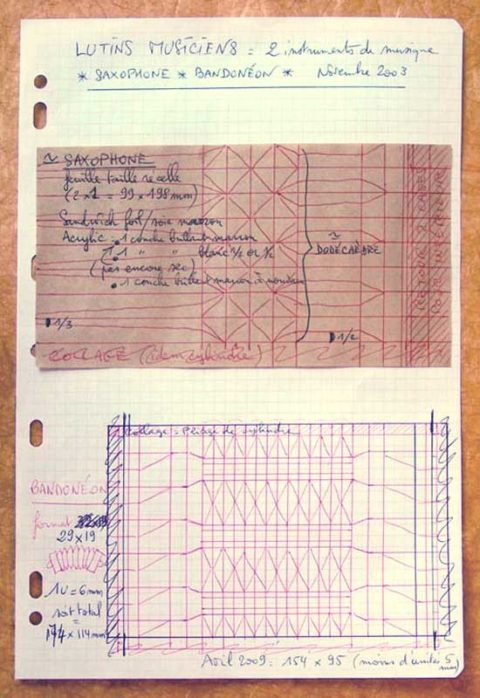 LUTINS MUSICIENS = 2 instruments de musique
* SAXOPHONE * BANDONÉON * Novembre 2003
~ SAXOPHONE
feuille taille réelle
(2 x 1 = 99 x 198 mm)
Sandwich foil/soie marron
Acrylic • 1 couche brillant marron
• 1 " " blanc 1/2 or 1/2
(pas encore sec)
• 1 couche brillant marron
~
DODÉCAÈDRE
1/3
1/2
COLLAGE (idem cylindre)
Collage = Pliage du cylindre
BANDONÉON
format
29 x 19
1U = 6 mm
soit total
=
174 x 114 mm
Avril 2009 : 154 x 95 (moins d'unités 5 mm)